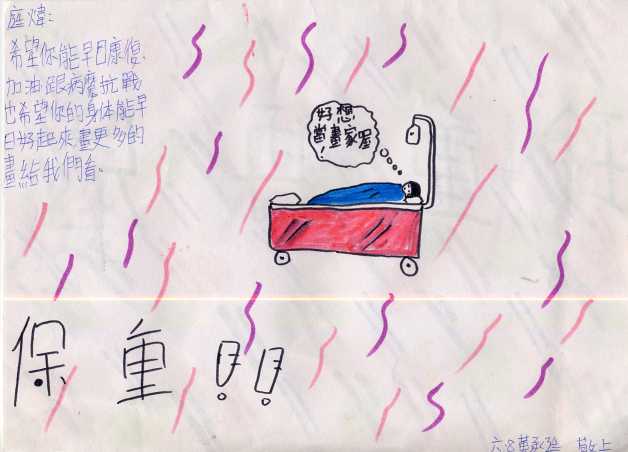 庭煒:
希望你能早日康復.
加油跟病魔抗戰
也希望你的身体能早
日好起來畫更多的
畫給我們看.
好想
當畫家喔
!
保重!!
敬上